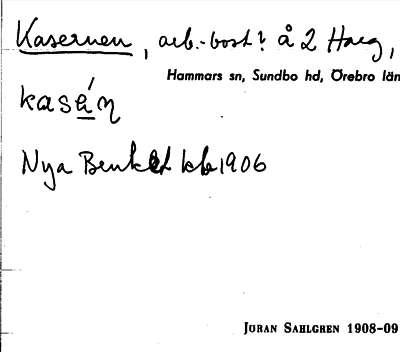 Kasernen, arb.-bost? å 2 Harg,
Hammars sn, Sundbo hd, Örebro län
kasé̱ɳ
Nya Benkel kb 1906
JÖRAN SAHLGREN 1908-09